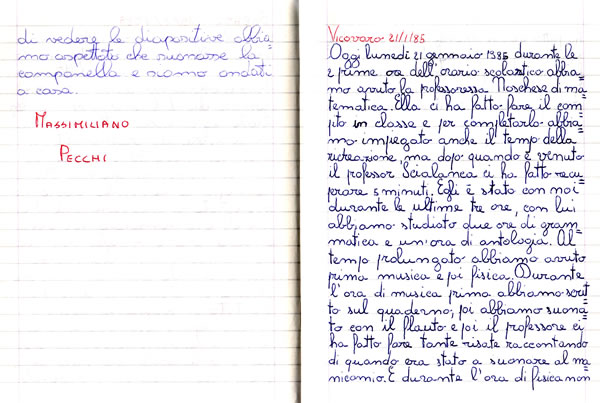 di vedere le diapositive abbia=
mo aspettato che suonasse la
campanella e siamo andati
a casa.
MASSIMILIANO
PECCHI
Vicovaro 21/1/85
Oggi lunedì 21 gennaio 1985 durante le
2 prime ora dell'orario scolastico abbia=
mo avuto la professoressa Moschese di ma=
tematica. Ella ci ha fatto fare il com=
pito in classe e per completarlo abbia=
mo impiegato anche il tempo della
ricreazione, ma dopo quando è venuto
il professor Scialanca ci ha fatto recu=
prare 5 minuti. Egli è stato con noi
durante le ultime tre ore, con lui
abbiamo studiato due ore di gram=
matica e un'ora di antologia. Al
tempo prolungato abbiamo avuto
prima musica e poi fisica. Durante
l'ora di musica prima abbiamo scrit=
to sul quaderno, poi abbiamo suona=
to con il flauto e poi il professore ci
ha fatto fare tante risate raccontando
di quando era stato a suonare al ma=
nicomio. E durante l'ora di fisica non